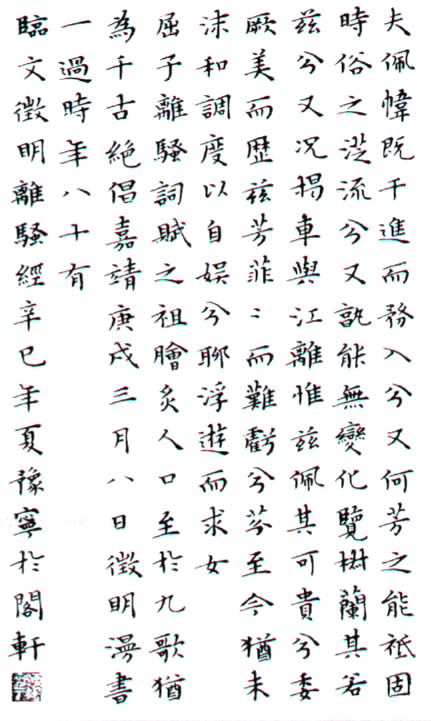 夫佩幃既干進而務入兮又何芳之能祗固
時俗之從流兮又孰能無變化覽椒蘭其若
兹兮又况揭車與江離惟兹佩其可貴兮委
厥美而歷兹芳菲〻而難虧兮芬至今猶未
沬和調度以自娛兮聊浮遊而求女
屈子離騷詞賦之祖膾炙人口至於九歌猶
為千古絕倡嘉靖庚戌三月八日徵明漫書
一過時年八十有
臨文徵明離騷經辛巳年夏豫寧於閣軒